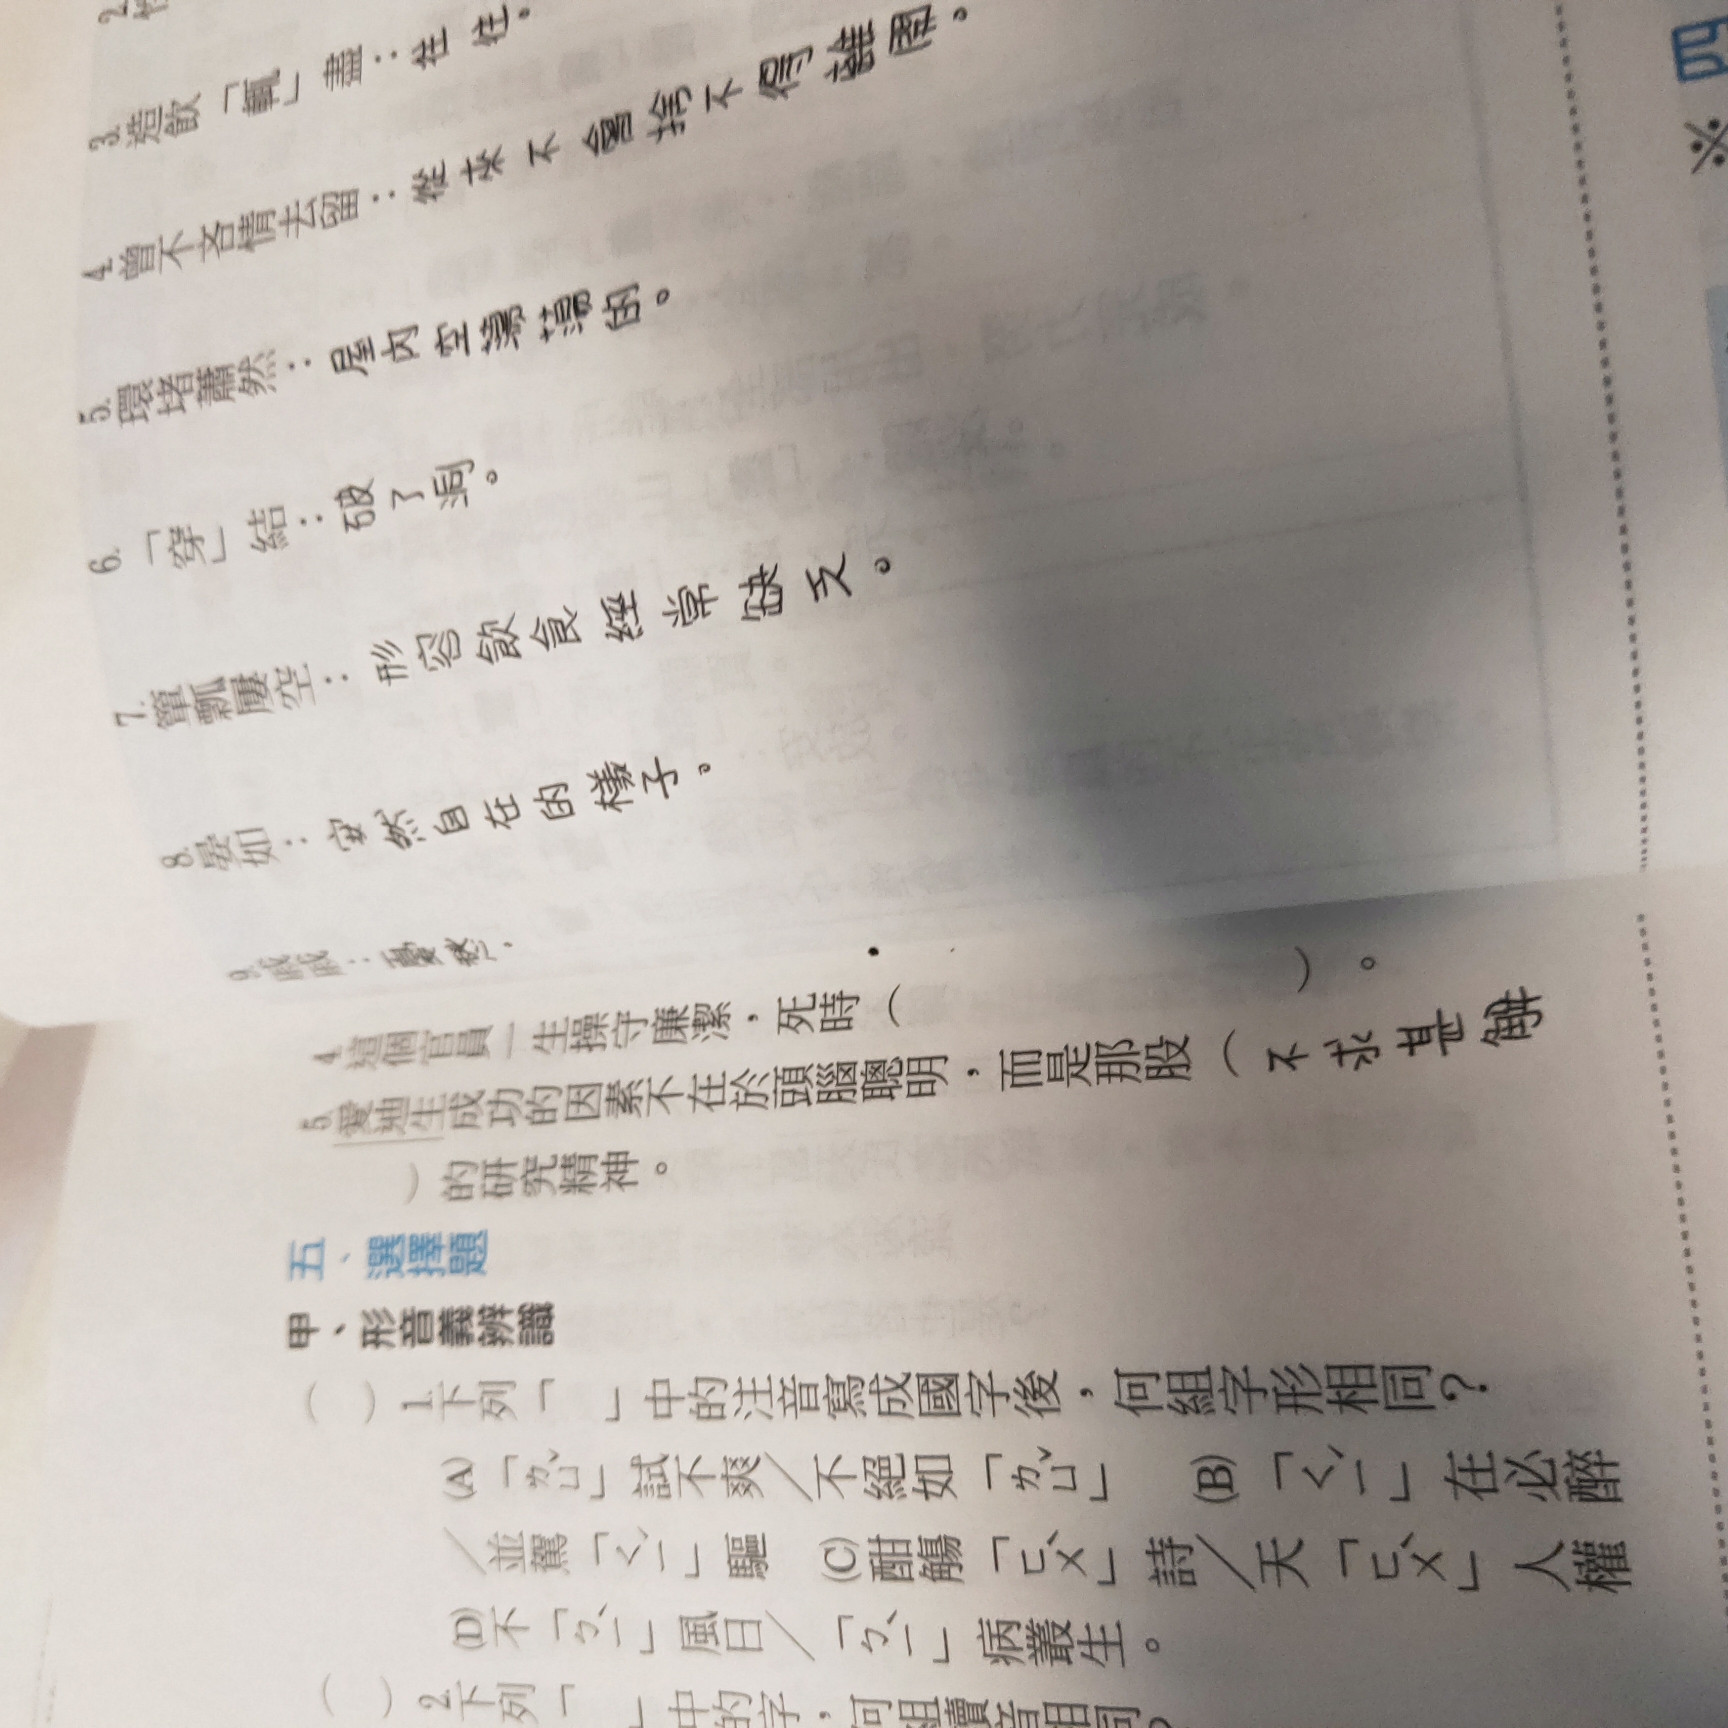 3.造飲「輒」盡：往往。
4.曾不吝情去留：從來不會捨不得離開。
5.環堵蕭然：屋內空蕩蕩的。
6.「穿」結：破了洞。
7.簞瓢屢空：形容飲食經常缺乏。
8.晏如：安然自在的樣子。
9.戚戚：憂愁、
4.這個官員一生操守廉潔，死時（　　　　）。
5.愛迪生成功的因素不在於頭腦聰明，而是那股（不求甚解
）的研究精神。
五、選擇題
甲、形音義辨識
（　）1.下列「　」中的注音寫成國字後，何組字形相同？
(A)「ㄌㄩˇ」試不爽／不絕如「ㄌㄩˇ」　(B)「ㄑㄧˊ」在必醉
／並駕「ㄑㄧˊ」驅　(C)酣觴「ㄈㄨˋ」詩／天「ㄈㄨˋ」人權
(D)不「ㄅㄧˋ」風日／「ㄅㄧˋ」病叢生。
（　）2.下列「　」中的字，何組讀音相同？
四
※